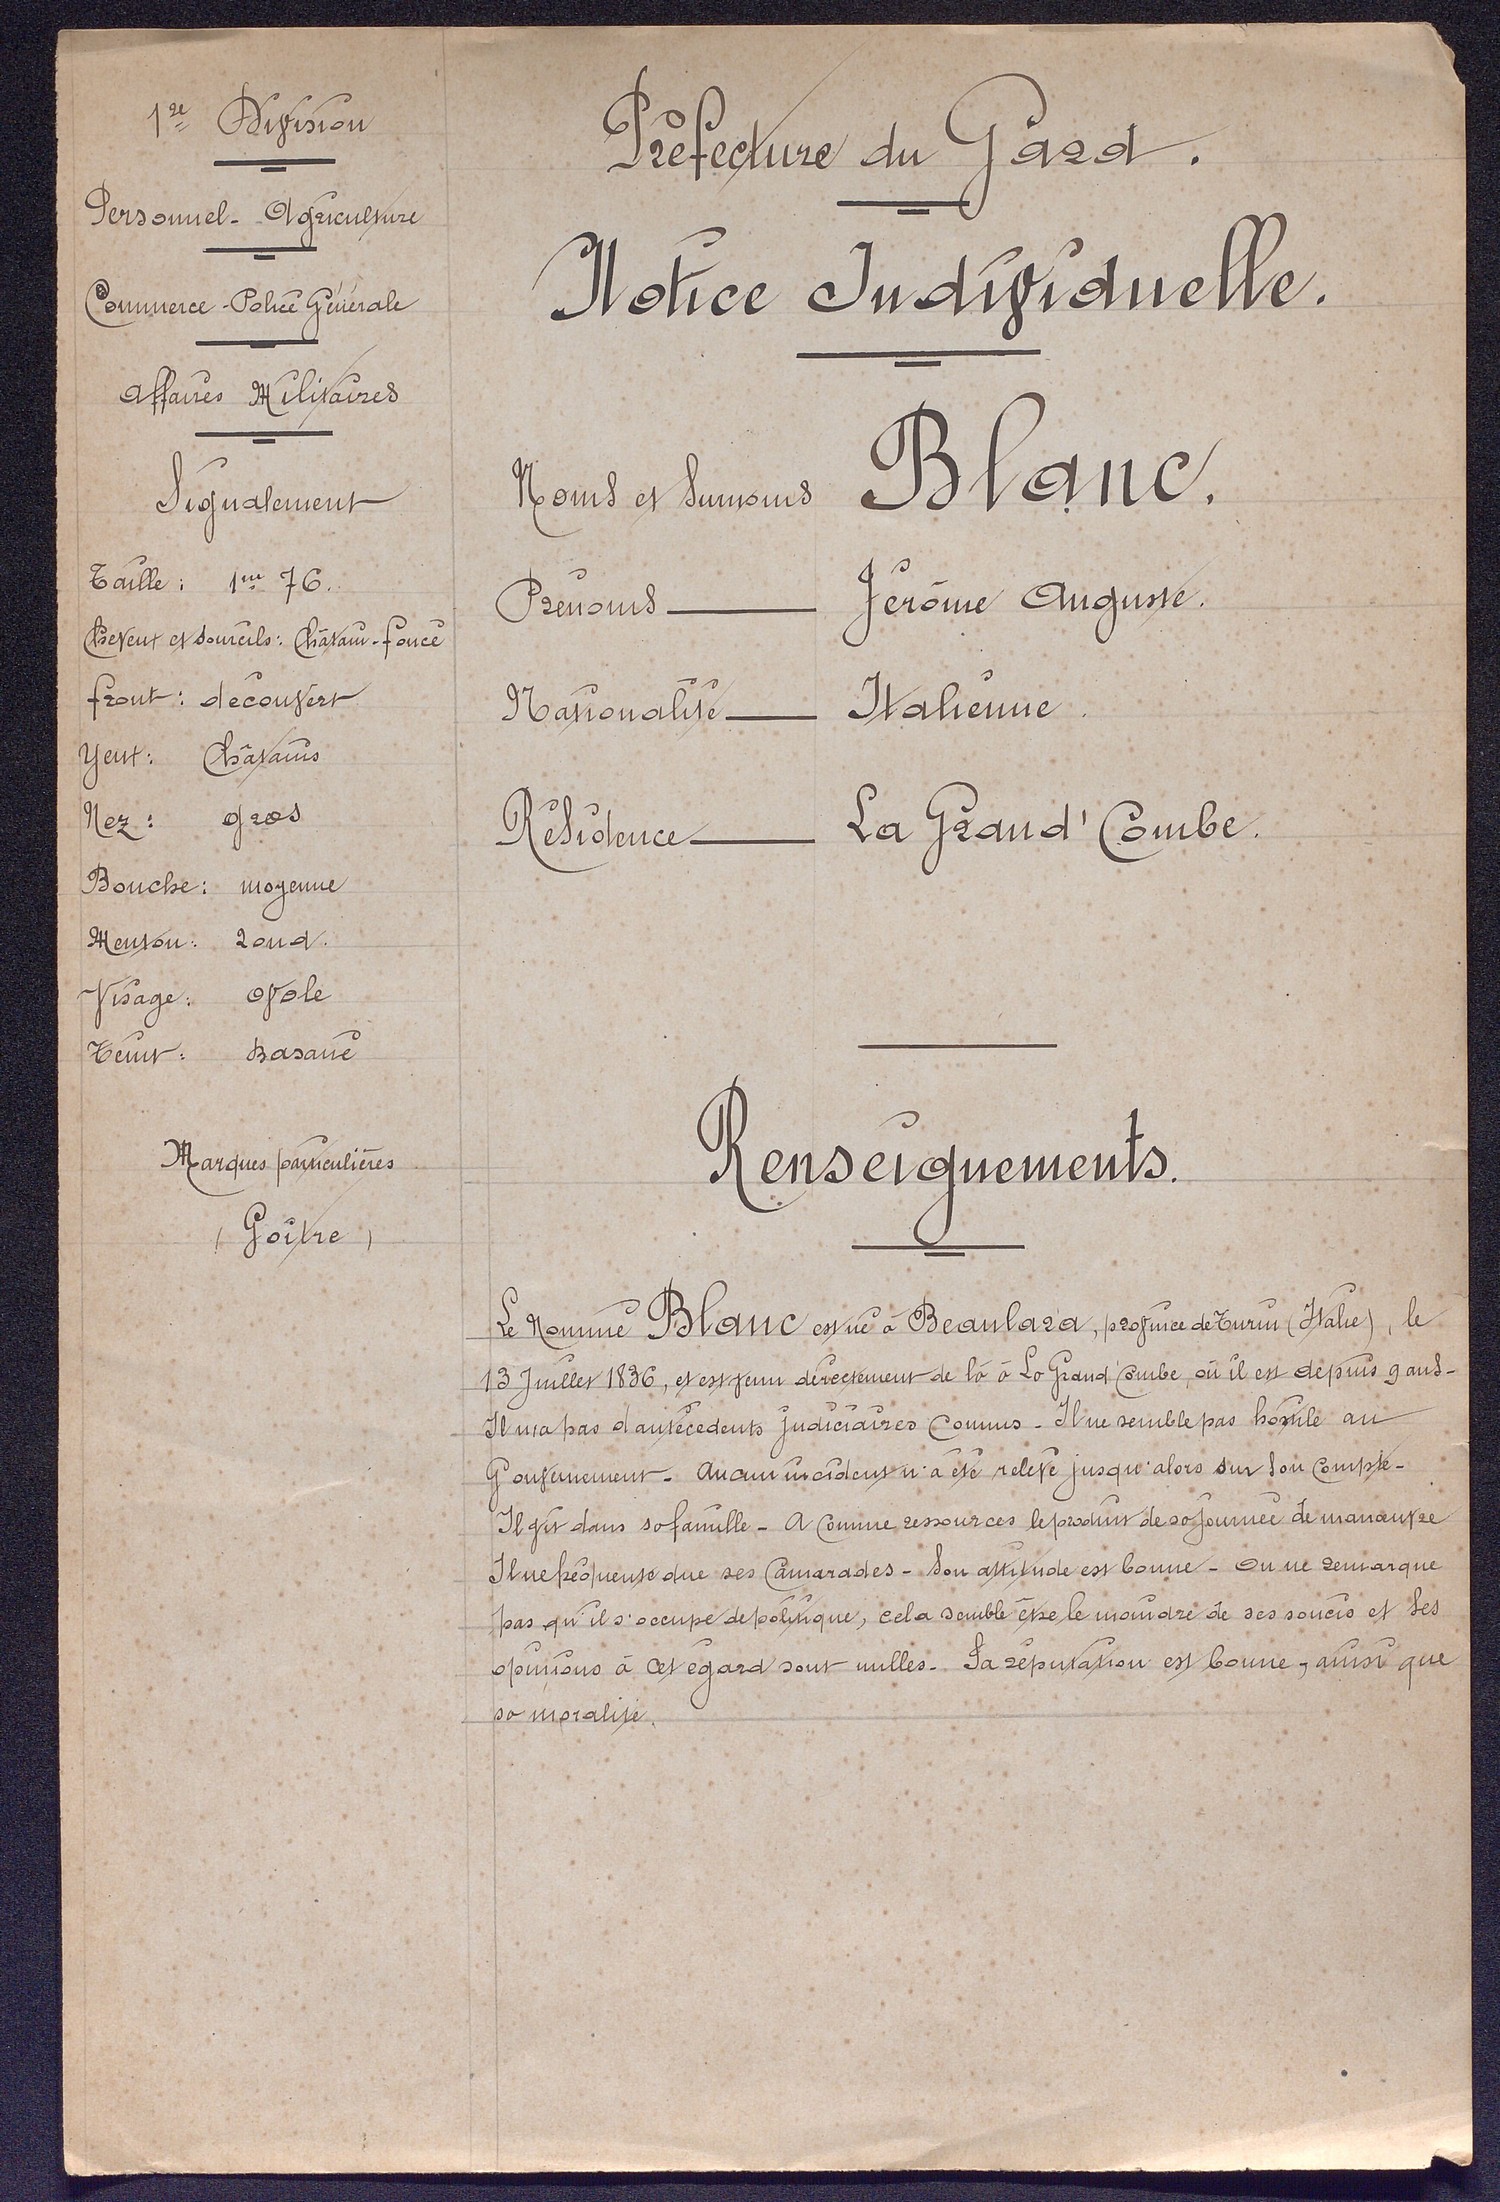 1re Division
Personnel - Agriculture
Commerce - Police Générale
Affaires Militaires
Signalement
Taille : 1m 76.
Cheveux et sourcils : Châtain-foncé
front : découvert
Yeux : Châtains
Nez : gros
Bouche : moyenne
Menton : rond.
Visage : ovale
Teint : basané
Marques particulières
( Goître )
Préfecture du Gard.
Notice Individuelle.
Noms et surnoms Blanc.
Prénoms Jérôme Auguste.
Nationalité Italienne.
Résidence La Grand' Combe.
Renseignements.
Le Nommé Blanc est né à Beaulard, province de Turin (Italie), le
13 Juillet 1836, et est venu directement de là à La Grand'Combe, où il est depuis 9 ans -
Il n'a pas d'antécédents judiciaires connus - Il ne semble pas hostile au
Gouvernement - Aucun incident n'a été relevé jusqu'alors sur son compte -
Il vit dans sa famille - A comme ressources le produit de sa journée de manœuvre
Il ne fréquente que ses camarades - Son attitude est bonne - On ne remarque
pas qu'il s'occupe de politique, cela semble être le moindre de ses soucis et ses
opinions à cet égard sont nulles - Sa réputation est bonne, ainsi que
sa moralité.